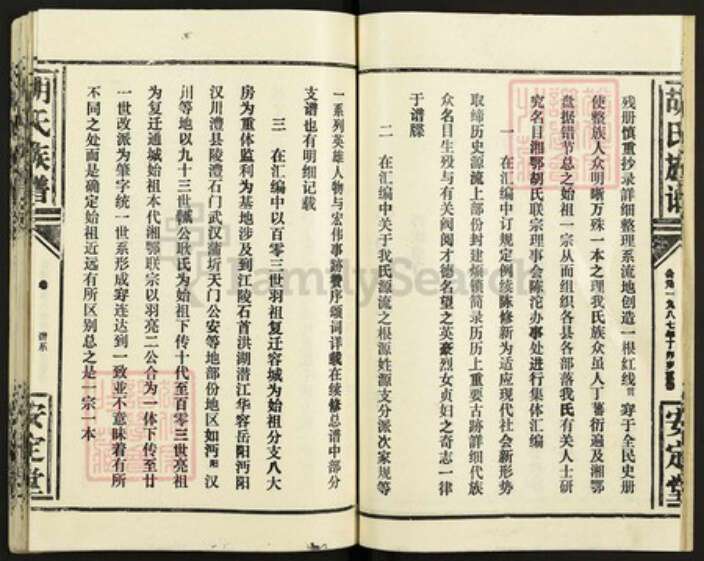 胡氏族谱
公元一九八七年丁卯岁
安定堂
残册慎重抄录詳细整理系流地创造一根红线贯穿于全民史册
使整族人众明晰万殊一本之理我氏族众虽人丁蕃衍遍及湘鄂
盘据错节总之始祖一宗从而组织各县各部落我氏有关人士研
究名目湘鄂胡氏联宗理事会陈沱办事处进行集体汇编
一 在汇编中订规定例续陈修新为适应现代社会新形势
取缔历史源流上部份封建烦锁简录历历上重要古跡詳细代族
众名目生殁与有关阀阅才德名望之英豪烈女贞妇之奇志一律
于谱牒
二 在汇编中关于我氏源流之根源姓源支分派次家规等
一系列英雄人物与宏伟事跡赞序颂词详载在续修总谱中部分
支谱也有明细记载
三 在汇编中以百零三世羽祖复迁容城为始祖分支八大
房为重体监利为基地涉及到江陵石首洪湖潜江华容岳阳沔阳
汉川澧县陵澧石门武汉蒲圻天门公安等地部份地区如沔阳汉
川等地以九十三世公耿氏为始祖下传十代至百零三世亮祖
为复迁通城始祖本代湘鄂联宗以羽亮二公合为一体下传至廿
一世改派为肇字统一世系形成穿连达到一致並不意昧着有所
不同之处而是确定始祖近远有所区别总之是一宗一本
胡氏族谱
卷
谱系
安定堂
FamilySearch